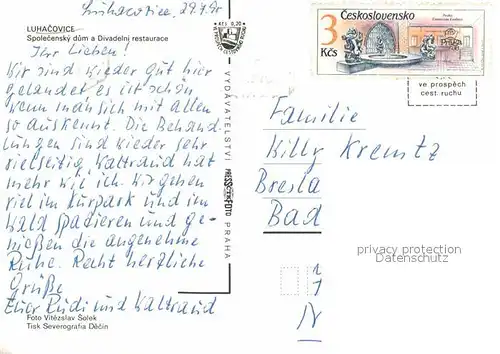 Luhačovice, 29.7.90
LUHAČOVICE
Společenský dům a Divadelní restaurace
Ihr Lieben!
Wir sind wieder gut hier
gelandet es ist schön
wenn man sich mit allen
so auskennt. Die Behand-
lungen sind wieder sehr
vielseitig, Waltraud hat
mehr wie ich. Wir gehen
viel im Kurpark und im
Wald spazieren und ge-
nießen die angenehme
Ruhe. Recht herzliche
Grüße
Euer Rudi und Waltraud
Foto Vítězslav Solek
Tisk Severografia Děčín
Kčs 0,20
VYDAVATELSTVÍ PRESSFOTO PRAHA
Československo
3
Kčs
ve prospěch
cest. ruchu
Familie
Willy Kremtz
Bad
privacy protection
Datenschutz